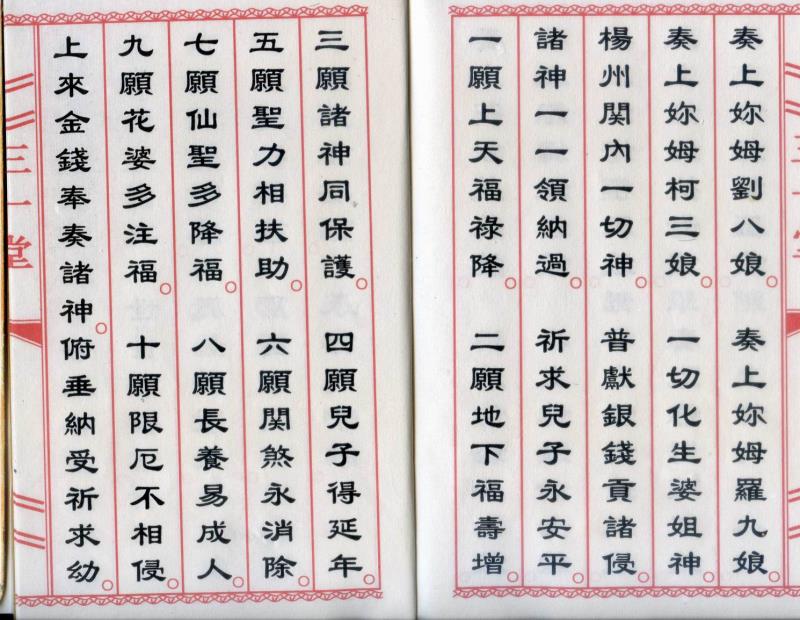 奏上妳姆劉八娘。奏上妳姆羅九娘。
奏上妳姆柯三娘。一切化生婆姐神。
楊州関內一切神。普獻銀錢貢諸侵。
諸神一一領納過。祈求兒子永安平。
一願上天福祿降。二願地下福壽增。
三願諸神同保護。四願兒子得延年。
五願聖力相扶助。六願関煞永消除。
七願仙聖多降福。八願長養易成人。
九願花婆多注福。十願限厄不相侵。
上來金錢奉奏諸神。俯垂納受祈求幼
三一堂